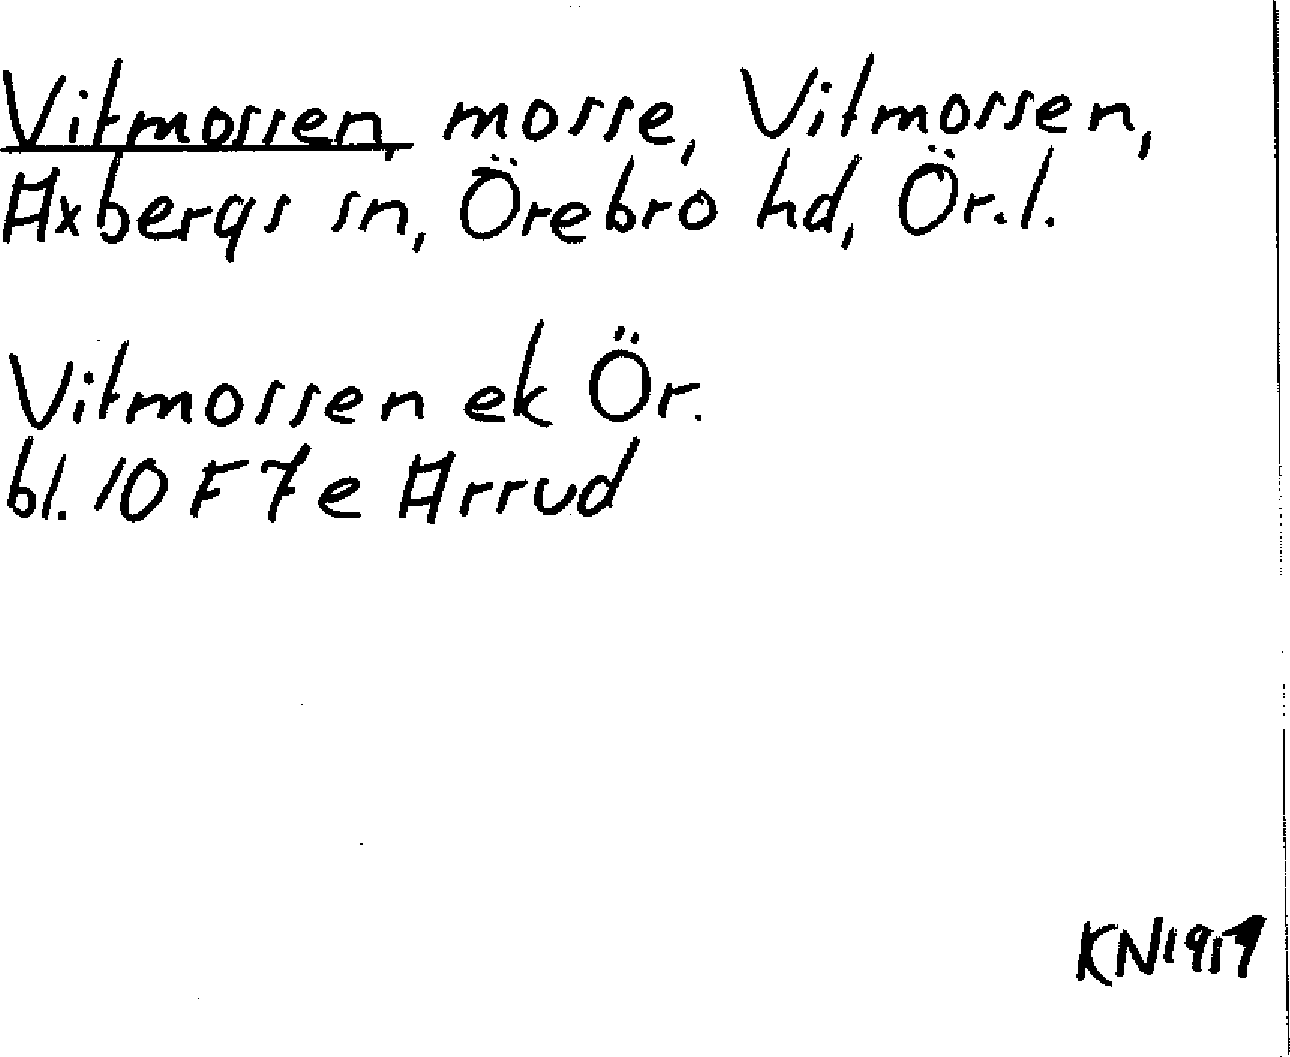 Vitmossen, mosse, Vitmossen,
Axbergs sn, Örebro hd, Ör.l.
Vitmossen ek Ör.
bl. 10 F 7e Arrud